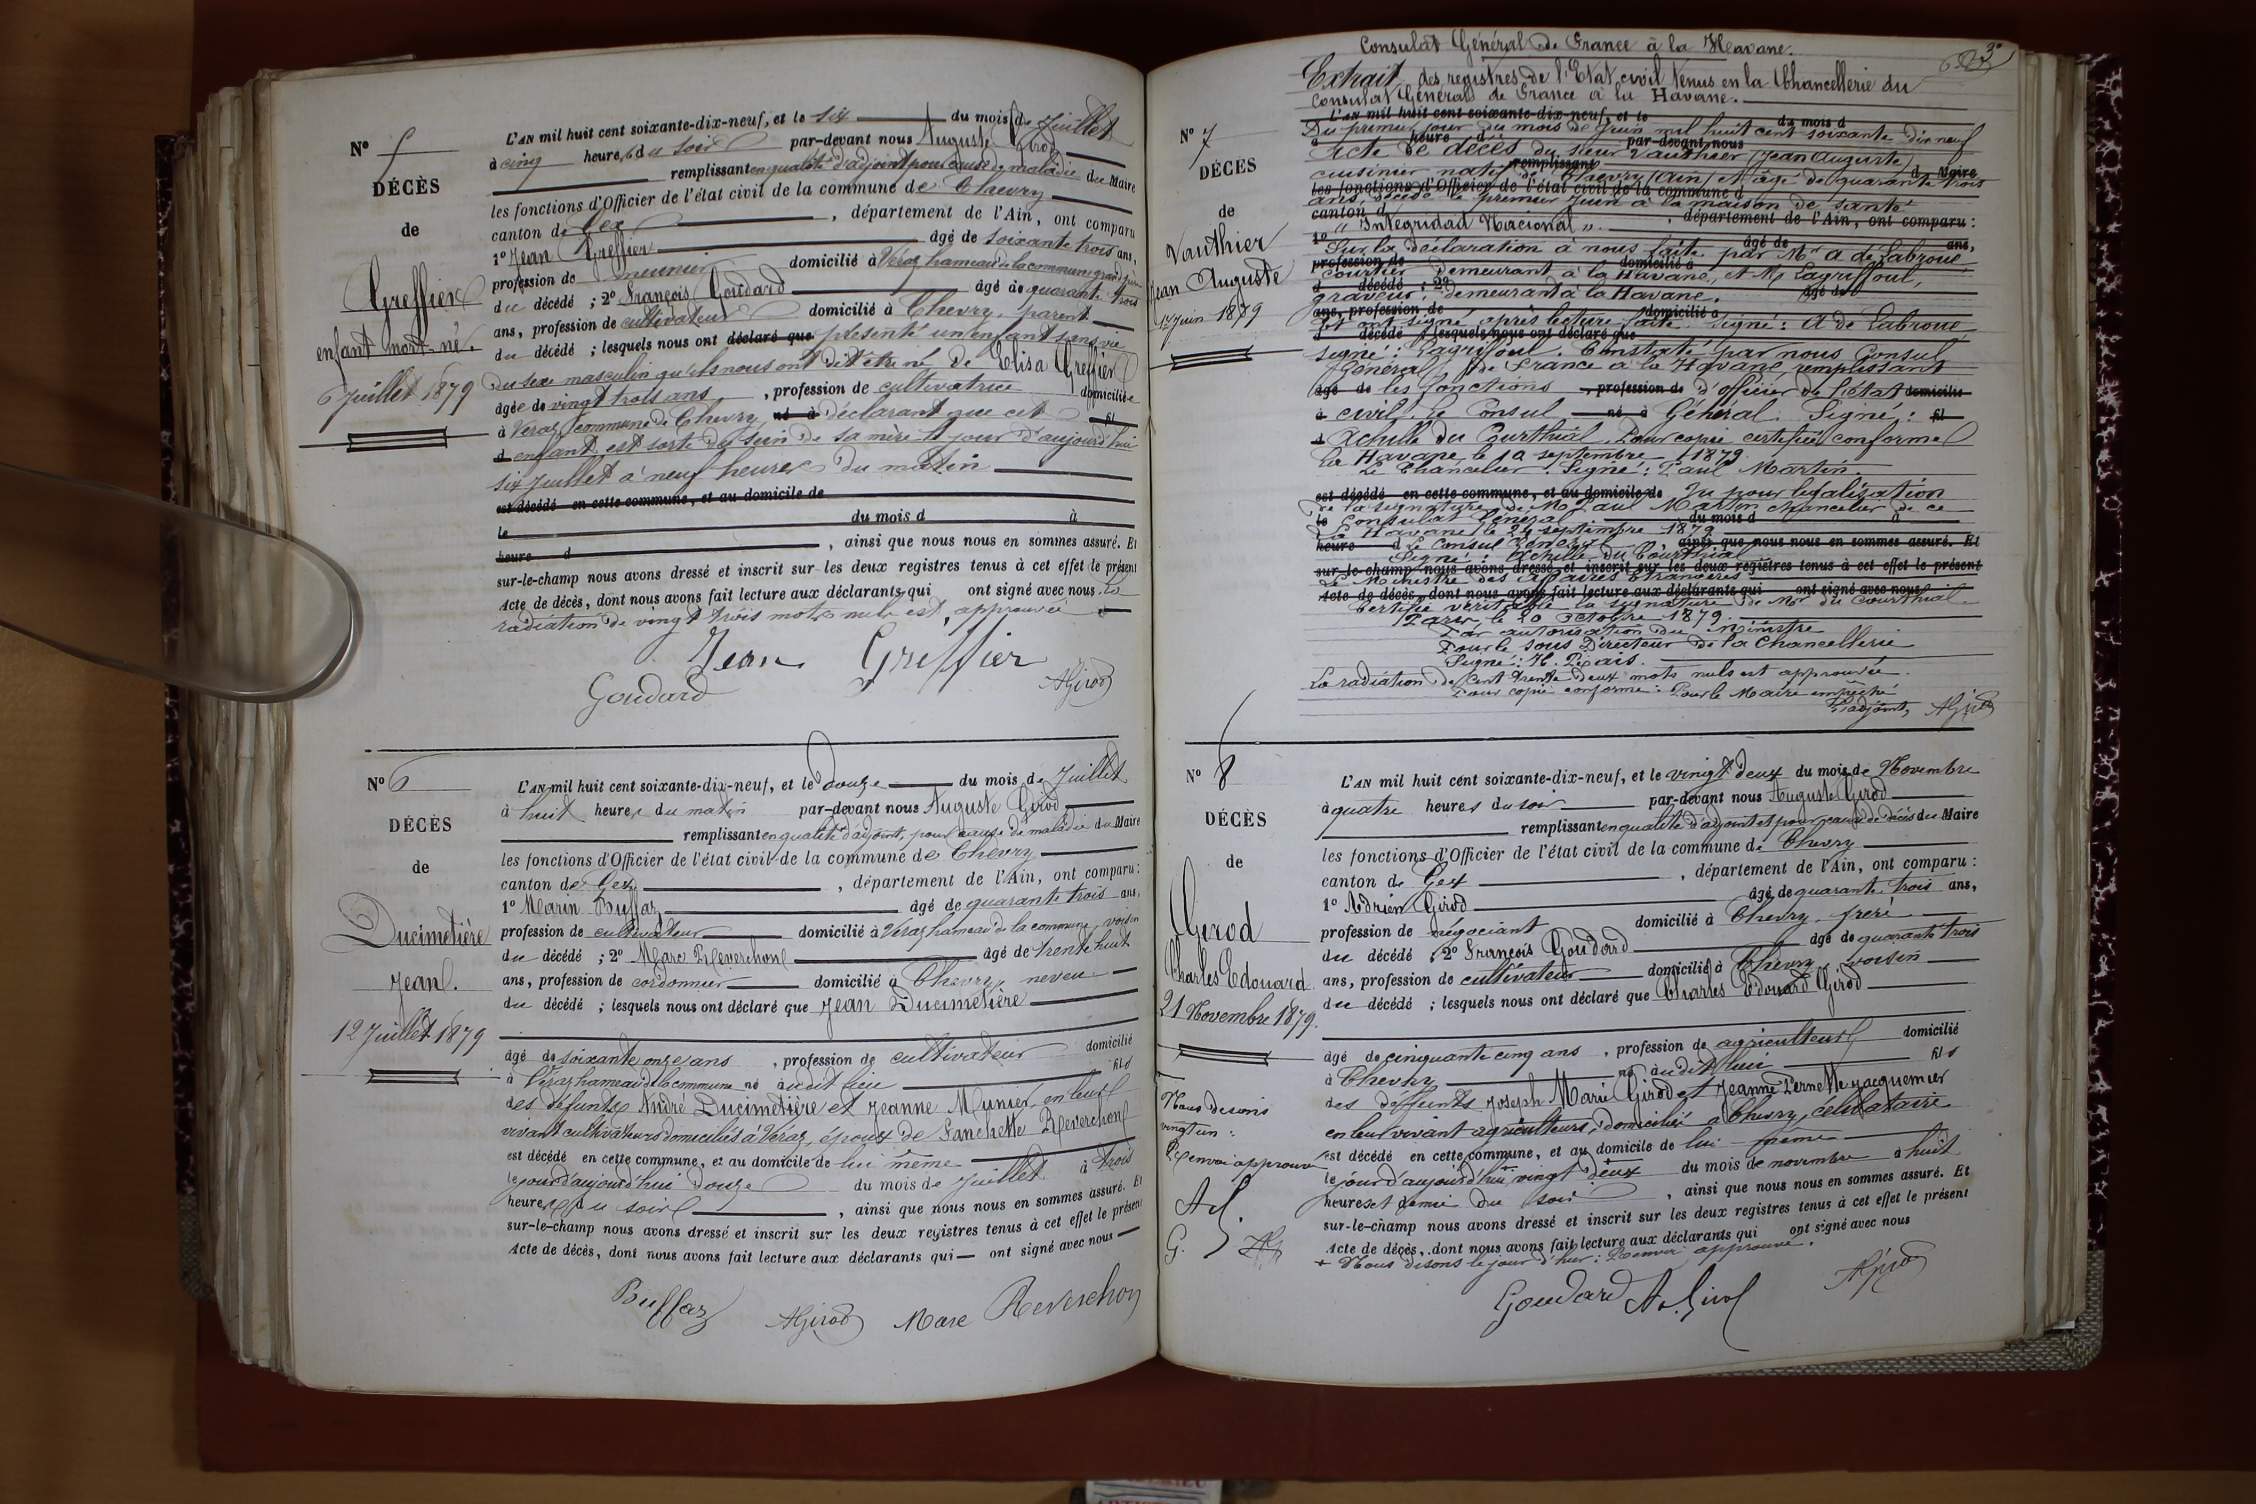 Nº 5
DÉCÈS
de
Greffier
enfant mort-né.
6 Juillet 1879
L'AN mil huit cent soixante-dix-neuf, et le six du mois de Juillet
à cinq heures du soir par-devant nous Auguste Girod
remplissant en qualité d'adjoint pour cause de maladie du Maire
les fonctions d'Officier de l'état civil de la commune de Chevry
canton de Gex, département de l'Ain, ont comparu
1º Jean Greffier âgé de soixante trois ans,
profession de meunier domicilié à Véraz hameau de la commune grand père
du décédé ; 2º François Goudard âgé de quarante trois
ans, profession de cultivateur domicilié à Chevry, parent
du décédé ; lesquels nous ont déclaré que présenté un enfant sans vie
du sexe masculin qu'ils nous ont dit être né de Elisa Greffier
âgée de vingt trois ans, profession de cultivatrice domiciliée
à Véraz commune de Chevry né à déclarant que cet fil
d enfant est sorti du sein de sa mère le jour d'aujourd'hui
six Juillet à neuf heures du matin
est décédé en cette commune, et au domicile de
le du mois d à
heure d, ainsi que nous nous en sommes assuré. Et
sur-le-champ nous avons dressé et inscrit sur les deux registres tenus à cet effet le présent
Acte de décès, dont nous avons fait lecture aux déclarants qui ont signé avec nous. La
radiation de vingt trois mots nuls est approuvée
Jean Greffier
Goudard AGirod
Nº 6
DÉCÈS
de
Ducimetière
Jean.
12 Juillet 1879
L'AN mil huit cent soixante-dix-neuf, et le douze du mois de Juillet
à huit heures du matin par-devant nous Auguste Girod
remplissant en qualité d'adjoint, pour cause de maladie du Maire
les fonctions d'Officier de l'état civil de la commune de Chevry
canton de Gex, département de l'Ain, ont comparu :
1º Marin Buffaz âgé de quarante trois ans,
profession de cultivateur domicilié à Véraz hameau de la commune, voisin
du décédé ; 2º Marc Reverchon âgé de trente huit
ans, profession de cordonnier domicilié à Chevry, neveu
du décédé ; lesquels nous ont déclaré que Jean Ducimetière
âgé de soixante onze ans, profession de cultivateur domicilié
à Véraz hameau de la commune né audit lieu fils
des défunts André Ducimetière et Jeanne Munier, en leur
vivant cultivateurs domiciliés à Véraz, époux de Fanchette Reverchon
est décédé en cette commune, et au domicile de lui même
le jour d'aujourd'hui douze du mois de Juillet à trois
heures du soir, ainsi que nous nous en sommes assuré. Et
sur-le-champ nous avons dressé et inscrit sur les deux registres tenus à cet effet le présent
Acte de décès, dont nous avons fait lecture aux déclarants qui ont signé avec nous
Buffaz AGirod Marc Reverchon
Consulat Général de France à la Havane.
3º
Extrait des registres de l'Etat civil tenus en la Chancellerie du
Consulat Général de France à la Havane.
Nº 7
DÉCÈS
de
Vauthier
Jean Auguste
1er Juin 1879
L'AN mil huit cent soixante-dix-neuf, et le du mois d
Du premier jour du mois de Juin mil huit cent soixante dix neuf
à heure d par-devant nous
Acte de décès du sieur Vauthier (Jean Auguste)
remplissant d Maire
cuisinier natif de Chevry (Ain) et âgé de quarante trois
les fonctions d'Officier de l'état civil de la commune d
ans, décédé le premier Juin à la maison de santé
canton d, département de l'Ain, ont comparu :
" Integridad Nacional ".
1º âgé de ans,
Sur la déclaration à nous faite par Mr A de Labroue
profession de domicilié à
courtier demeurant à la Havane, et Mr Lagriffoul,
d décédé ; 2º âgé de
graveur, demeurant à la Havane.
ans, profession de domicilié à
Et ont signé après lecture faite. Signé : A de Labroue
d décédé ; lesquels nous ont déclaré que
signé : Lagriffoul. Constaté par nous Consul
Général de France à la Havane remplissant
âgé de les fonctions, profession de d'officier de l'état domicilié
à civil. Le Consul né à Général. Signé : fil
d Achille du Courthial. Pour copie certifiée conforme
La Havane le 10 septembre 1879.
Le Chancelier Signé : Paul Martin.
est décédé en cette commune, et au domicile de Vu pour légalisation
de la signature de Mr Paul Martin chancelier de ce
le Consulat Général du mois d à
La Havane le 24 septembre 1879
heure d Le Consul Général, ainsi que nous nous en sommes assuré. Et
Signé : Achille du Courthial
sur-le-champ nous avons dressé et inscrit sur les deux registres tenus à cet effet le présent
Le Ministre des Affaires Etrangères
Acte de décès, dont nous avons fait lecture aux déclarants qui ont signé avec nous
Certifie véritable la signature de Mr du Courthial.
Paris, le 20 Octobre 1879.
Par autorisation du Ministre
Pour le Sous Directeur de la Chancellerie
La radiation de cent trente deux mots nuls est approuvée.
Pour copie conforme : Pour le Maire empêché
L'adjoint, AGirod
Nº 8
DÉCÈS
de
Girod
Charles Edouard
21 Novembre 1879.
Nous disons
vingt un :
Renvoi approuvé
L'AN mil huit cent soixante-dix-neuf, et le vingt deux du mois de Novembre
à quatre heures du soir par-devant nous Auguste Girod
remplissant en qualité d'adjoint et pour cause de décès du Maire
les fonctions d'Officier de l'état civil de la commune de Chevry
canton de Gex, département de l'Ain, ont comparu :
1º Adrien Girod âgé de quarante trois ans,
profession de négociant domicilié à Chevry, frère
du décédé ; 2º François Goudard âgé de quarante trois
ans, profession de cultivateur domicilié à Chevry, voisin
du décédé ; lesquels nous ont déclaré que Charles Edouard Girod
âgé de cinquante cinq ans, profession de agriculteur domicilié
à Chevry né audit lieu fils
des défunts Joseph Marie Girod et Jeanne Pernette Jacquemier
en leur vivant agriculteurs, domiciliés à Chevry, célibataire
est décédé en cette commune, et au domicile de lui même
le jour d'aujourd'hui vingt deux du mois de novembre à huit
heures et demie du soir, ainsi que nous nous en sommes assuré. Et
sur-le-champ nous avons dressé et inscrit sur les deux registres tenus à cet effet le présent
Acte de décès, dont nous avons fait lecture aux déclarants qui ont signé avec nous
+ Nous disons le jour d'hier : Renvoi approuvé.
Goudard Ad. Girod AGirod